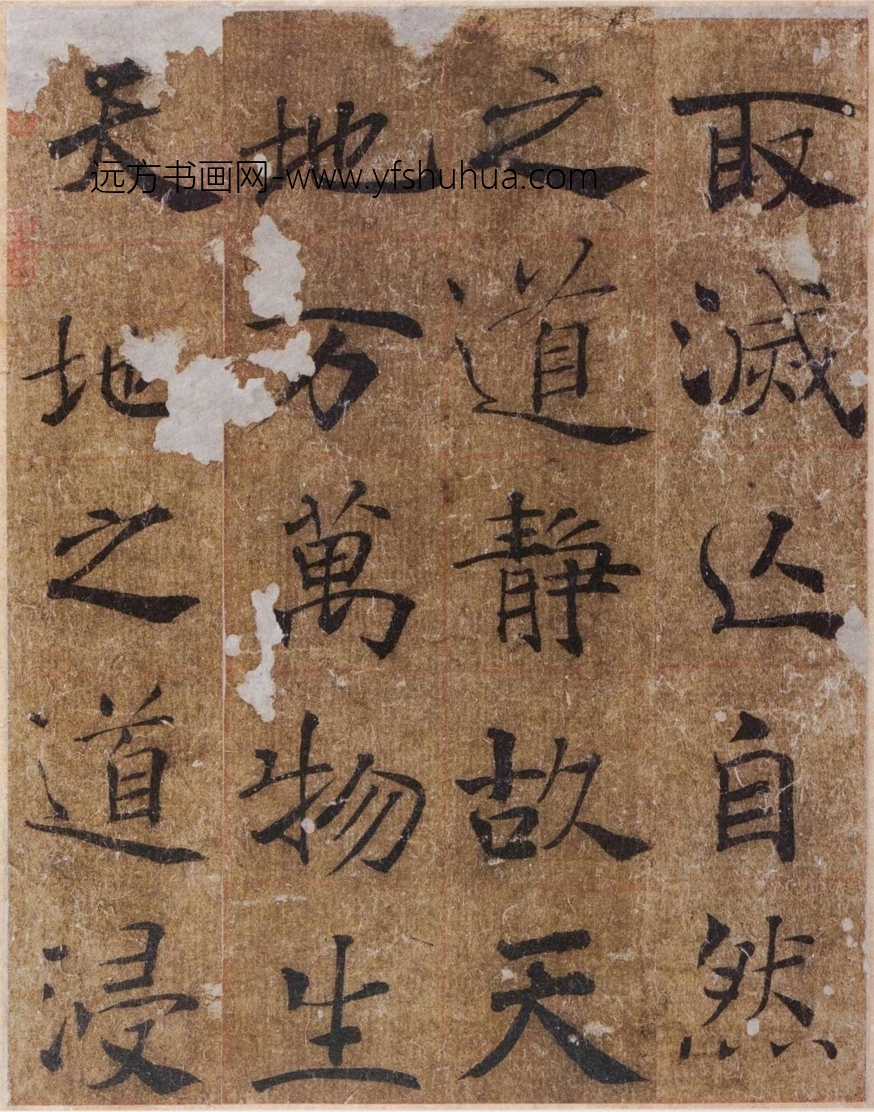 取滅亾自然
之道靜故天
地万萬物生
天地之道浸
远方书画网-www.yfshuhua.com